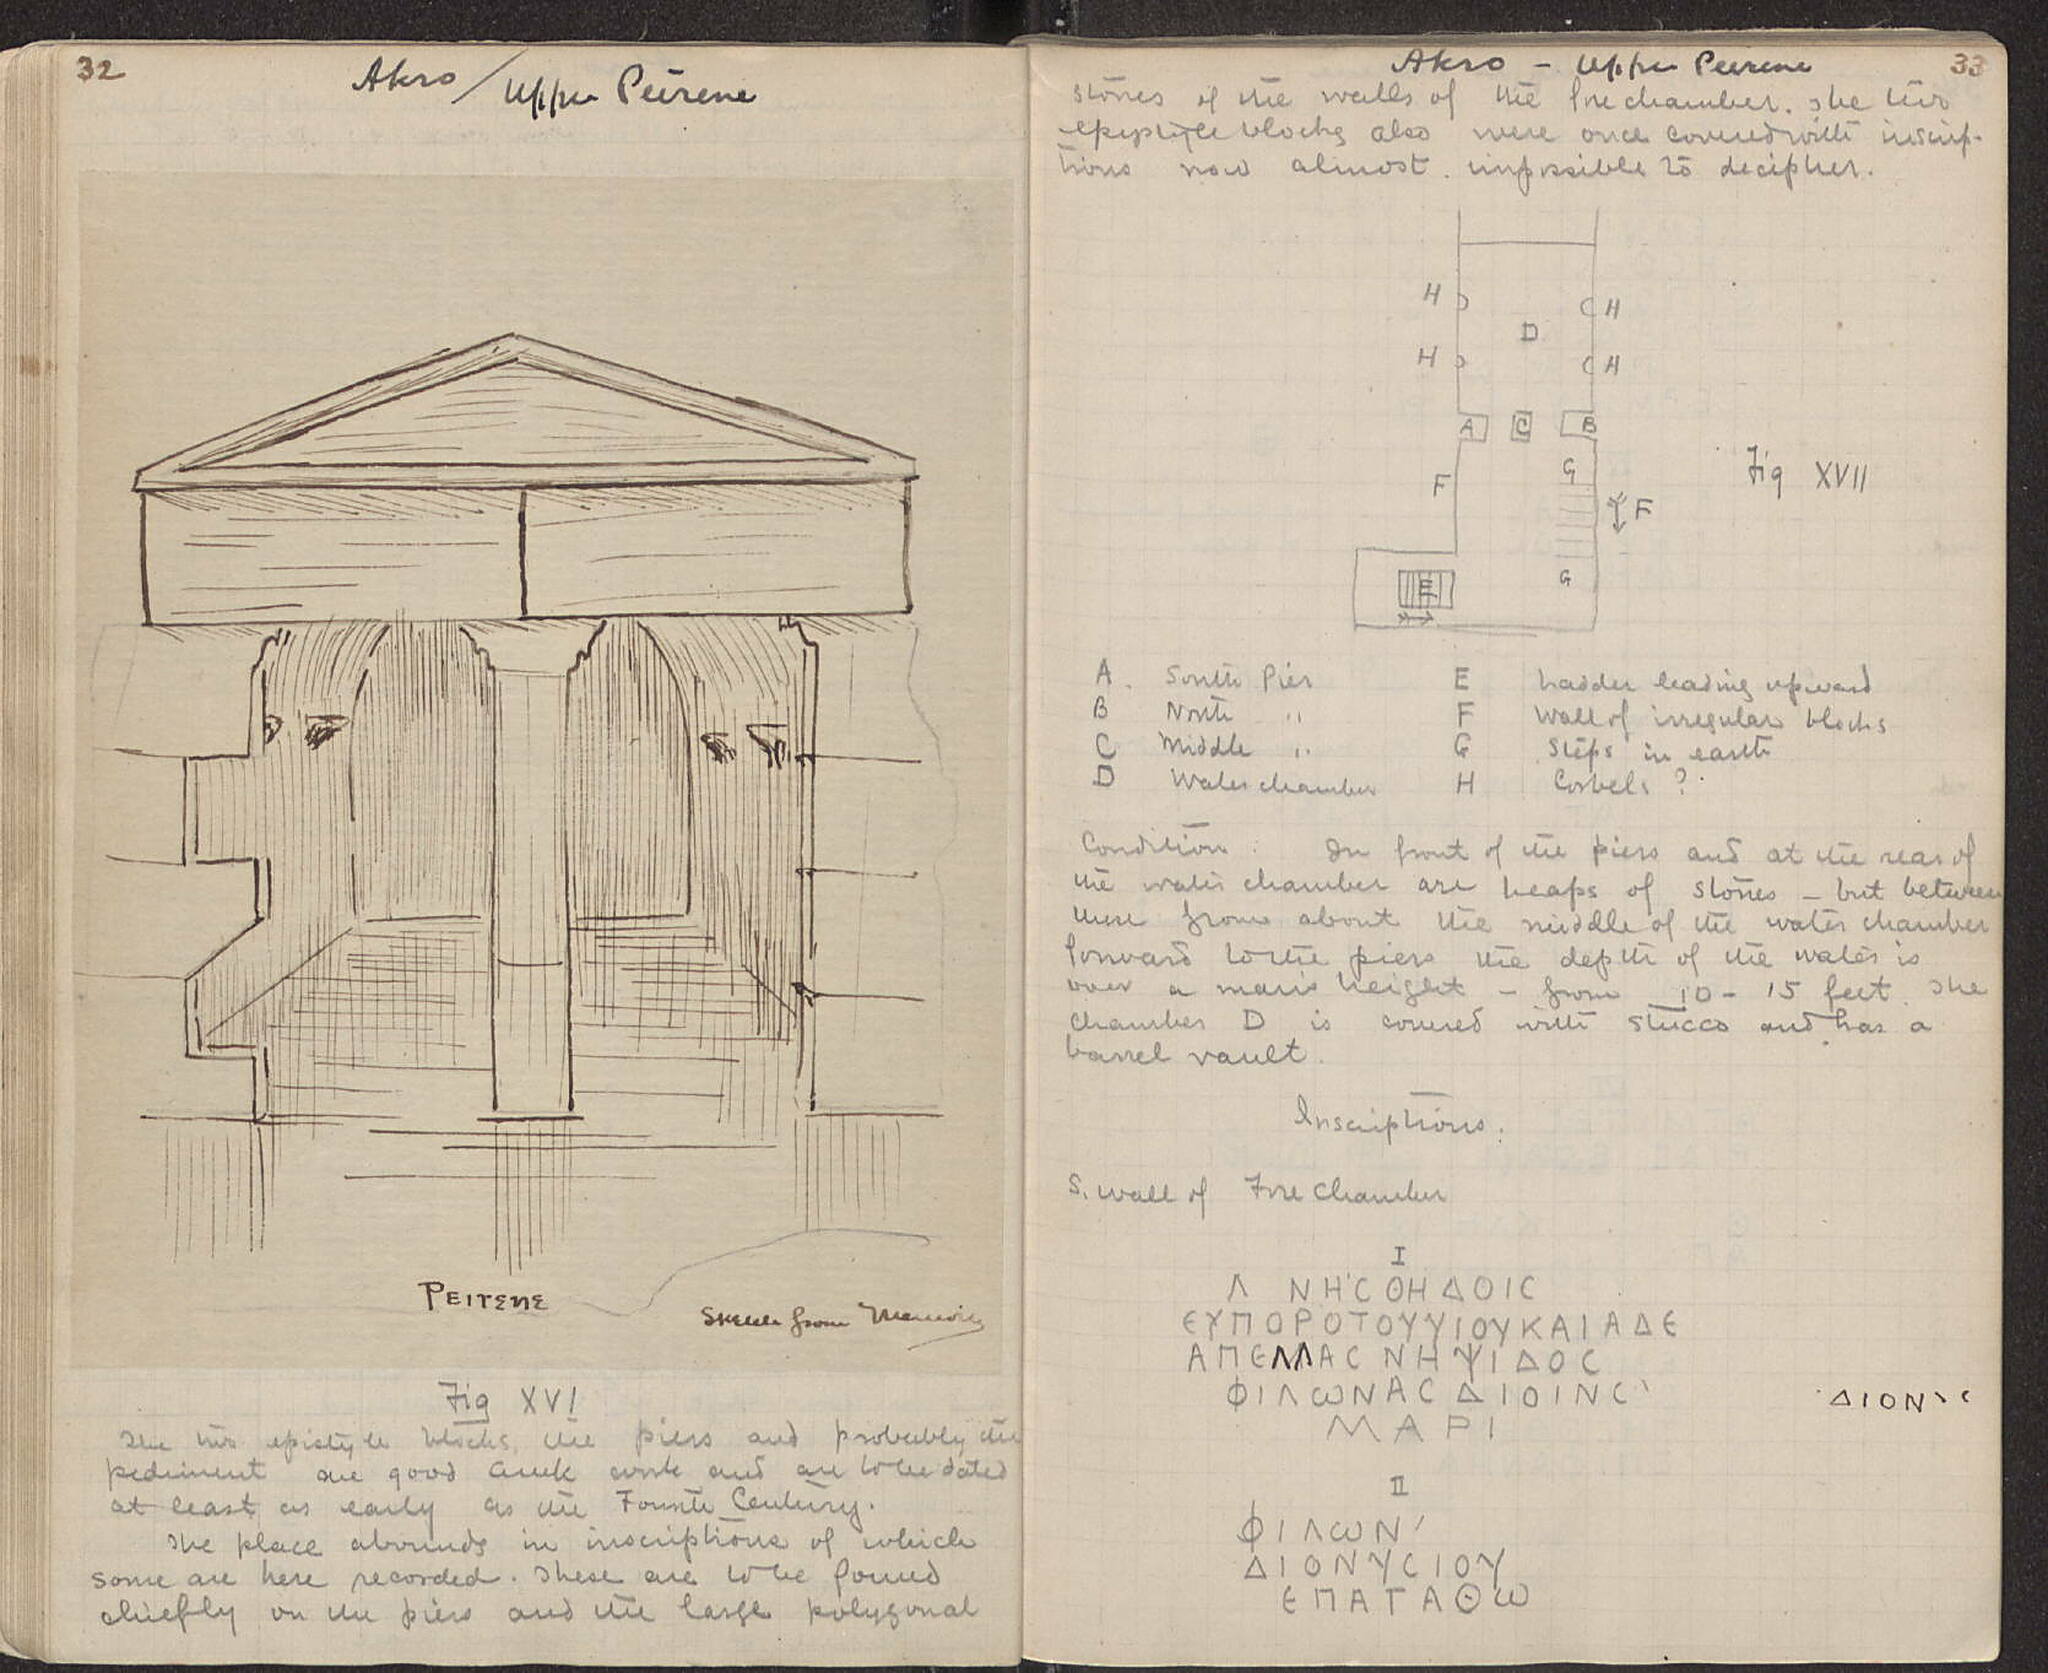 32
Akro / Upper Peirene
PEIRENE
Sketch from Memory
Fig XVI
The two epistyle blocks, the piers and probably the
pediment are good Greek work and are to be dated
at least as early as the Fourth Century.
The place abounds in inscriptions of which
some are here recorded. These are to be found
chiefly on the piers and the large polygonal
Akro - Upper Peirene
33
stones of the walls of the fore chamber. The two
epistyle blocks also were once covered with inscrip-
tions now almost impossible to decipher.
H H
D
H H
A C B
G
F
F
Fig XVII
E
G
A South Pier
B North "
C Middle "
D Water chamber
E Ladder leading upward
F Wall of irregular blocks
G Steps in earth
H Corbels?
Condition: In front of the piers and at the rear of
the water chamber are heaps of stones - but between
these from about the middle of the water chamber
forward to the piers the depth of the water is
over a man's height - from 10 - 15 feet. The
chamber D is covered with stucco and has a
barrel vault.
Inscriptions:
S. wall of Fore Chamber
I
Λ ΝΗ'C ΘΗΔΟΙC
ЄΥΠΟΡΟΤΟΥΥΙΟΥΚΑΙΑΔЄ
ΑΠЄΛΛΑC ΝΗΨΙΔΟC
ΦΙΛωΝΑC ΔΙΟΙΝC'
ΔΙΟΝ
ΜΑΡΙ
II
ΦΙΛωΝ'
ΔΙΟΝΥCΙΟΥ
ЄΠΑΓΑΘω